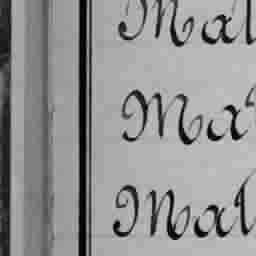 Mal
Mal
Mal